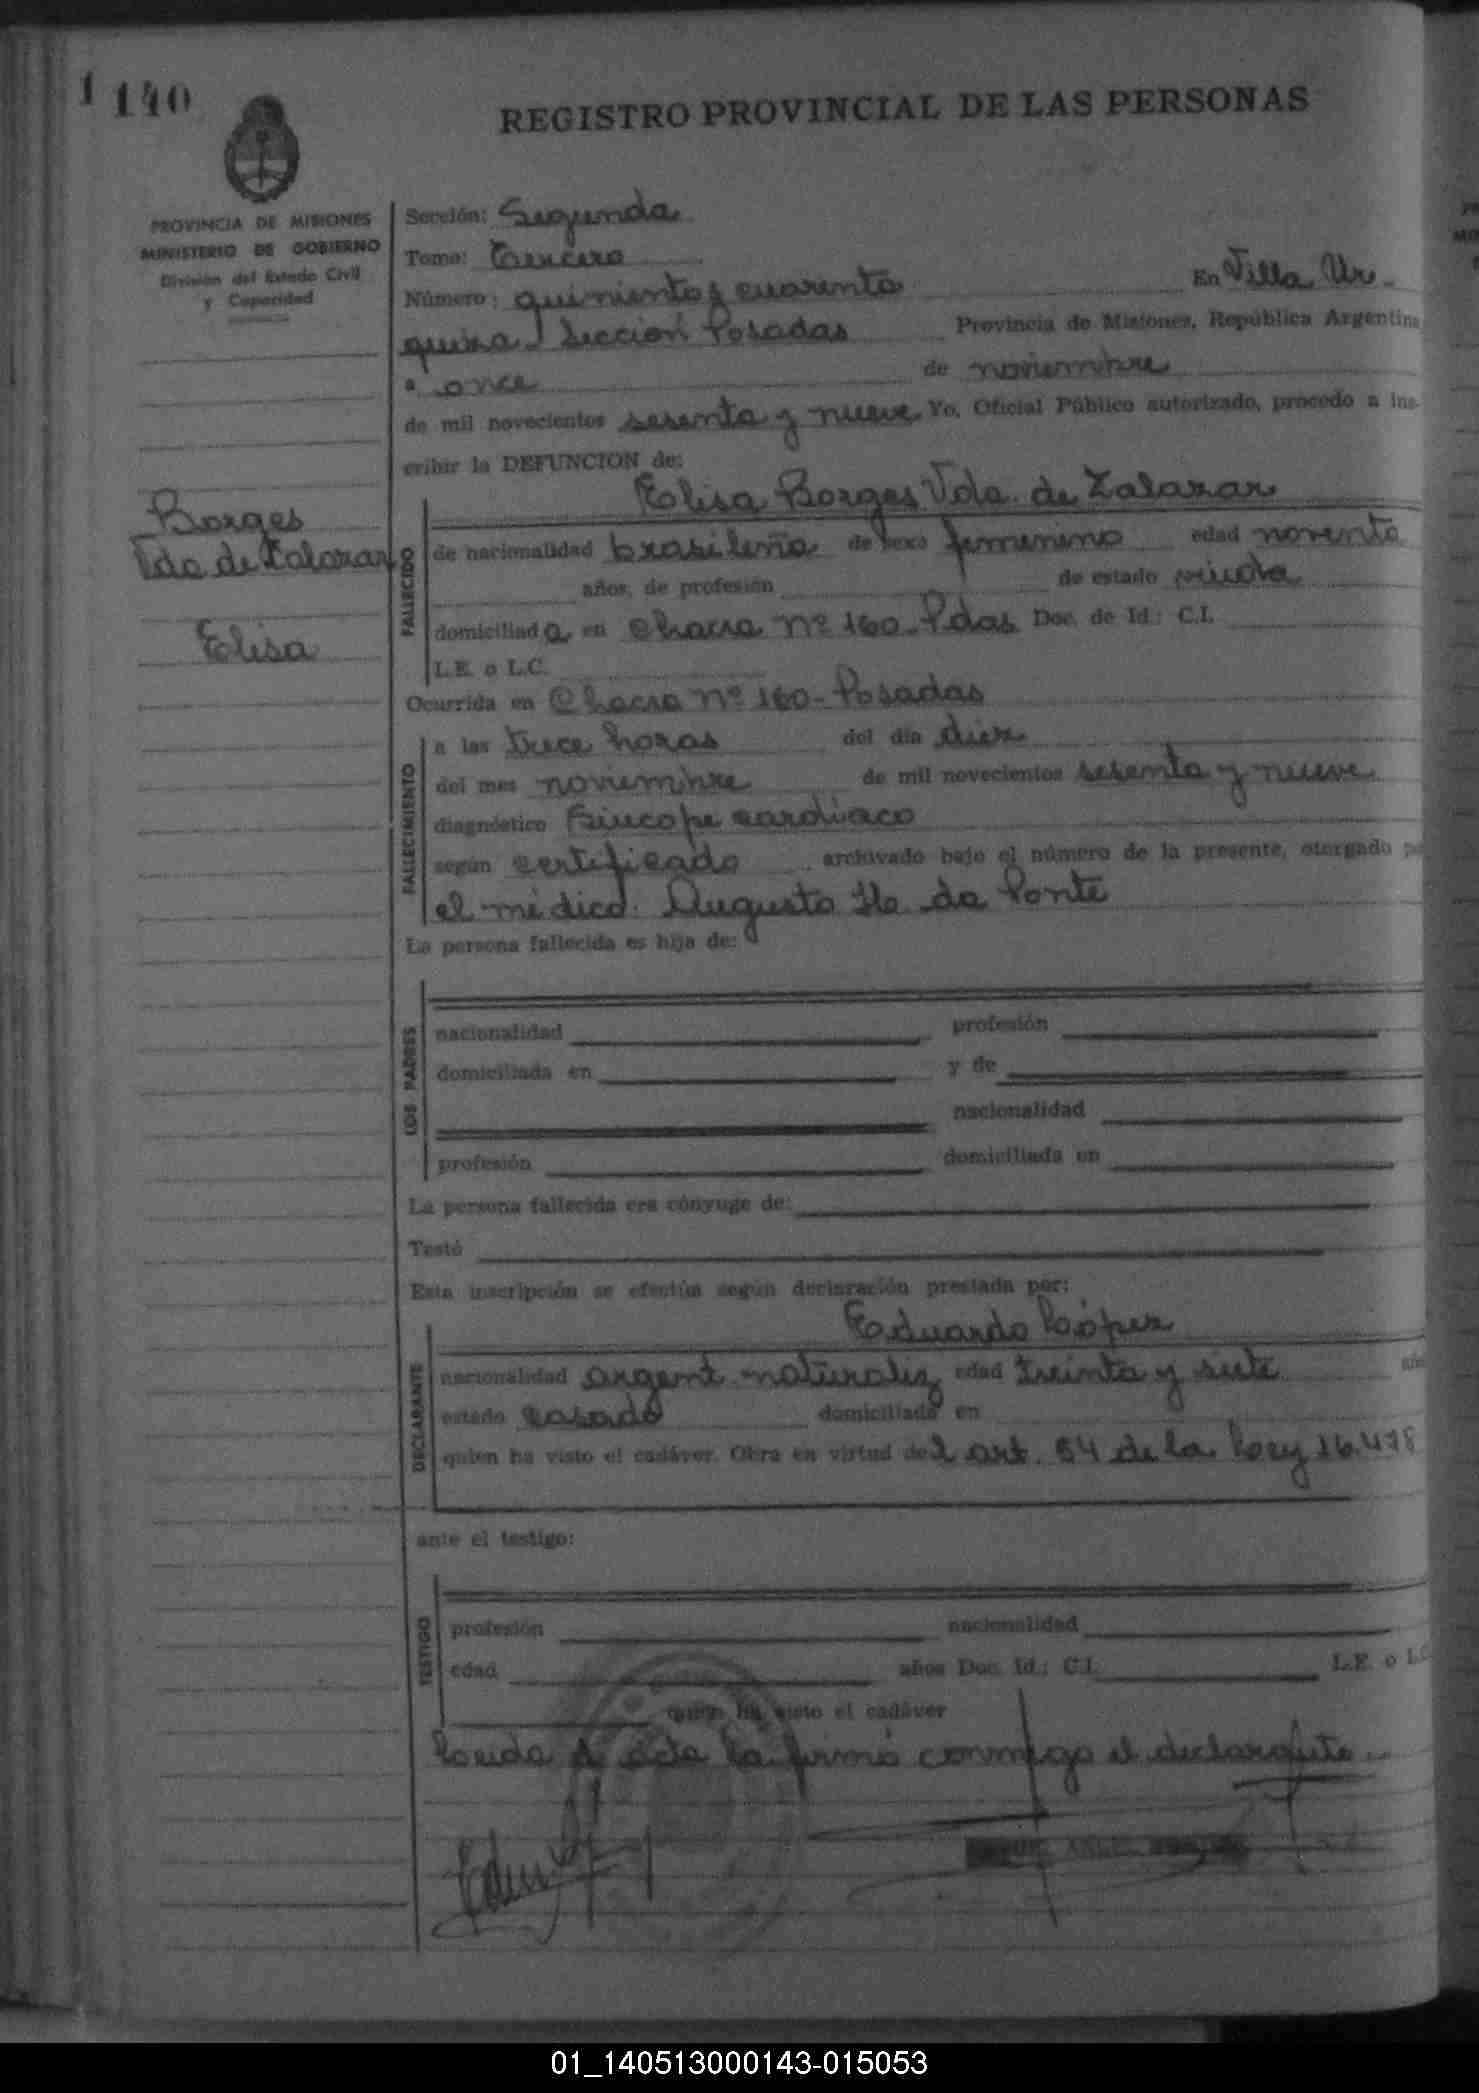 1 140
REGISTRO PROVINCIAL DE LAS PERSONAS
PROVINCIA DE MISIONES
MINISTERIO DE GOBIERNO
División del Estado Civil
y Capacidad
Borges
Vda de Zalazar
Elisa
Sección: Segunda
Tomo: Tercero
Número: quinientos cuarenta En Villa Ur-
quiza Sección Posadas Provincia de Misiones, República Argentina
a once de noviembre
de mil novecientos sesenta y nueve Yo, Oficial Público autorizado, procedo a ins-
cribir la DEFUNCION de:
Elisa Borges Vda. de Zalazar
FALLECIDO
de nacionalidad brasileña de sexo femenino edad noventa
años, de profesión de estado viuda
domiciliada en Chacra Nº 160-Pdas Doc. de Id.: C.I.
L.E. o L.C.
Ocurrida en Chacra Nº 160-Posadas
FALLECIMIENTO
a las trece horas del día diez
del mes noviembre de mil novecientos sesenta y nueve
diagnóstico Síncope cardíaco
según certificado archivado bajo el número de la presente, otorgado
el médico. Augusto da Ponte
La persona fallecida es hija de:
LOS PADRES
nacionalidad profesión
domiciliada en y de
nacionalidad
profesión domiciliada en
La persona fallecida era cónyuge de:
Testó
Esta inscripción se efectúa según declaración prestada por:
Eduardo López
DECLARANTE
nacionalidad argent. naturaliz edad treinta y siete
estado casado domiciliada en
quien ha visto el cadáver. Obra en virtud del art. 54 de la Ley 16.478
ante el testigo:
TESTIGO
profesión nacionalidad
edad años Doc. Id.: C.I. L.E. o L.C
quien ha visto el cadáver
Leída el acta la firmó conmigo el declarante
ANGEL
01_140513000143-015053